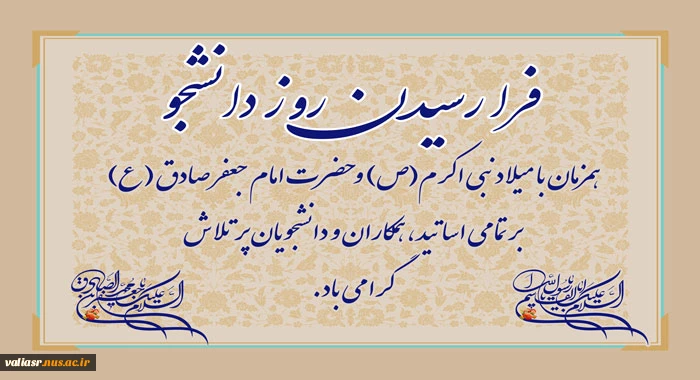 فرا رسیدن روز دانشجو
همزمان با میلاد نبی اکرم (ص) و حضرت امام جعفر صادق (ع)
بر تمامی اساتید، همکاران و دانشجویان پر تلاش
گرامی باد.
السلام علیک یا
السلام علیک یا
valiasr.nus.ac.ir